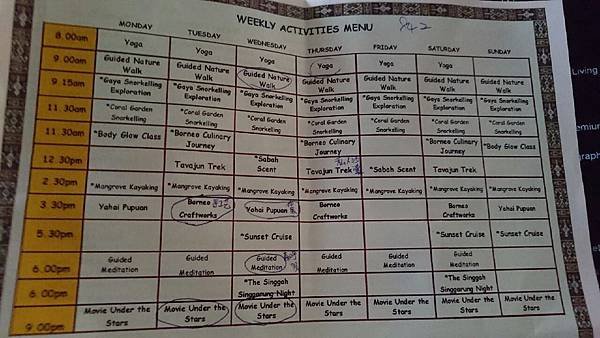 WEEKLY ACTIVITIES MENU
MONDAY TUESDAY WEDNESDAY THURSDAY FRIDAY SATURDAY SUNDAY
8.00am Yoga Yoga Yoga Yoga Yoga Yoga Yoga
9.00am Guided Nature Walk Guided Nature Walk Guided Nature Walk Guided Nature Walk Guided Nature Walk Guided Nature Walk Guided Nature Walk
9.15am *Gaya Snorkelling Exploration *Gaya Snorkelling Exploration *Gaya Snorkelling Exploration *Gaya Snorkelling Exploration *Gaya Snorkelling Exploration *Gaya Snorkelling Exploration *Gaya Snorkelling Exploration
11.30am *Coral Garden Snorkelling *Coral Garden Snorkelling *Coral Garden Snorkelling *Coral Garden Snorkelling *Coral Garden Snorkelling *Coral Garden Snorkelling *Coral Garden Snorkelling
11.30am *Body Glow Class *Borneo Culinary Journey *Borneo Culinary Journey *Borneo Culinary Journey *Body Glow Class
12.30pm Tavajun Trek *Sabah Scent Tavajun Trek *Sabah Scent Tavajun Trek
2.30pm *Mangrove Kayaking *Mangrove Kayaking *Mangrove Kayaking *Mangrove Kayaking *Mangrove Kayaking *Mangrove Kayaking *Mangrove Kayaking
3.30pm Yahai Pupuan Borneo Craftworks Yahai Pupuan Borneo Craftworks Borneo Craftworks Yahai Pupuan
5.30pm *Sunset Cruise *Sunset Cruise *Sunset Cruise
6.00pm Guided Meditation Guided Meditation Guided Meditation Guided Meditation Guided Meditation Guided Meditation
6.00pm *The Singgah Singgarung Night *The Singgah Singgarung Night
9.00pm Movie Under the Stars Movie Under the Stars Movie Under the Stars Movie Under the Stars Movie Under the Stars Movie Under the Stars Movie Under the Stars
Living